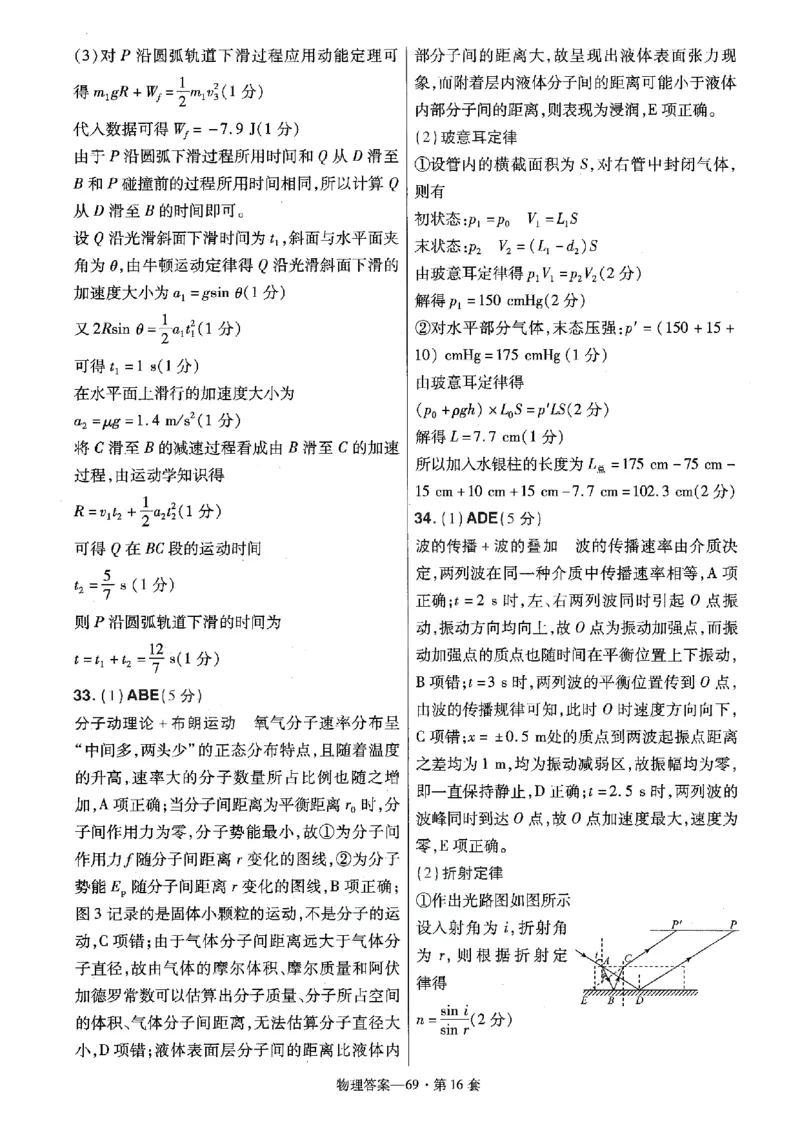 (3)对 P 沿圆弧轨道下滑过程应用动能定理可
得 m₁gR + W_f = 1/2 m₁v₃²(1 分)
代入数据可得 W_f = -7.9 J(1 分)
由于 P 沿圆弧下滑过程所用时间和 Q 从 D 滑至
B 和 P 碰撞前的过程所用时间相同,所以计算 Q
从 D 滑至 B 的时间即可。
设 Q 沿光滑斜面下滑时间为 t₁,斜面与水平面夹
角为 θ,由牛顿运动定律得 Q 沿光滑斜面下滑的
加速度大小为 a₁ = gsin θ(1 分)
又 2Rsin θ = 1/2 a₁t₁²(1 分)
可得 t₁ = 1 s(1 分)
在水平面上滑行的加速度大小为
a₂ = μg = 1.4 m/s²(1 分)
将 C 滑至 B 的减速过程看成由 B 滑至 C 的加速
过程,由运动学知识得
R = v₁t₂ + 1/2 a₂t₂²(1 分)
可得 Q 在 BC 段的运动时间
t₂ = 5/7 s (1 分)
则 P 沿圆弧轨道下滑的时间为
t = t₁ + t₂ = 12/7 s(1 分)
33. (1)ABE(5 分)
分子动理论 + 布朗运动 氧气分子速率分布呈
“中间多,两头少”的正态分布特点,且随着温度
的升高,速率大的分子数量所占比例也随之增
加,A 项正确;当分子间距离为平衡距离 r₀ 时,分
子间作用力为零,分子势能最小,故①为分子间
作用力 f 随分子间距离 r 变化的图线,②为分子
势能 Eₚ 随分子间距离 r 变化的图线,B 项正确;
图 3 记录的是固体小颗粒的运动,不是分子的运
动,C 项错;由于气体分子间距离远大于气体分
子直径,故由气体的摩尔体积、摩尔质量和阿伏
加德罗常数可以估算出分子质量、分子所占空间
的体积、气体分子间距离,无法估算分子直径大
小,D 项错;液体表面层分子间的距离比液体内
部分子间的距离大,故呈现出液体表面张力现
象,而附着层内液体分子间的距离可能小于液体
内部分子间的距离,则表现为浸润,E 项正确。
(2)玻意耳定律
①设管内的横截面积为 S,对右管中封闭气体,
则有
初状态:p₁ = p₀ V₁ = L₁S
末状态:p₂ V₂ = (L₁ - d₂)S
由玻意耳定律得 p₁V₁ = p₂V₂(2 分)
解得 p₁ = 150 cmHg(2 分)
②对水平部分气体,末态压强:p′ = (150 + 15 +
10) cmHg = 175 cmHg (1 分)
由玻意耳定律得
(p₀ + ρgh) × L₀S = p′LS(2 分)
解得 L = 7.7 cm(1 分)
所以加入水银柱的长度为 L总 = 175 cm - 75 cm -
15 cm + 10 cm + 15 cm - 7.7 cm = 102.3 cm(2 分)
34. (1)ADE(5 分)
波的传播 + 波的叠加 波的传播速率由介质决
定,两列波在同一种介质中传播速率相等,A 项
正确;t = 2 s 时,左、右两列波同时引起 O 点振
动,振动方向均向上,故 O 点为振动加强点,而振
动加强点的质点也随时间在平衡位置上下振动,
B 项错;t = 3 s 时,两列波的平衡位置传到 O 点,
由波的传播规律可知,此时 O 时速度方向向下,
C 项错;x = ±0.5 m处的质点到两波起振点距离
之差均为 1 m,均为振动减弱区,故振幅均为零,
即一直保持静止,D 正确;t = 2.5 s 时,两列波的
波峰同时到达 O 点,故 O 点加速度最大,速度为
零,E 项正确。
(2)折射定律
①作出光路图如图所示
设入射角为 i,折射角
为 r, 则 根 据 折 射 定
律得
n = sin i/sin r (2 分)
P′ P
A C
E B D
物理答案—69·第 16 套